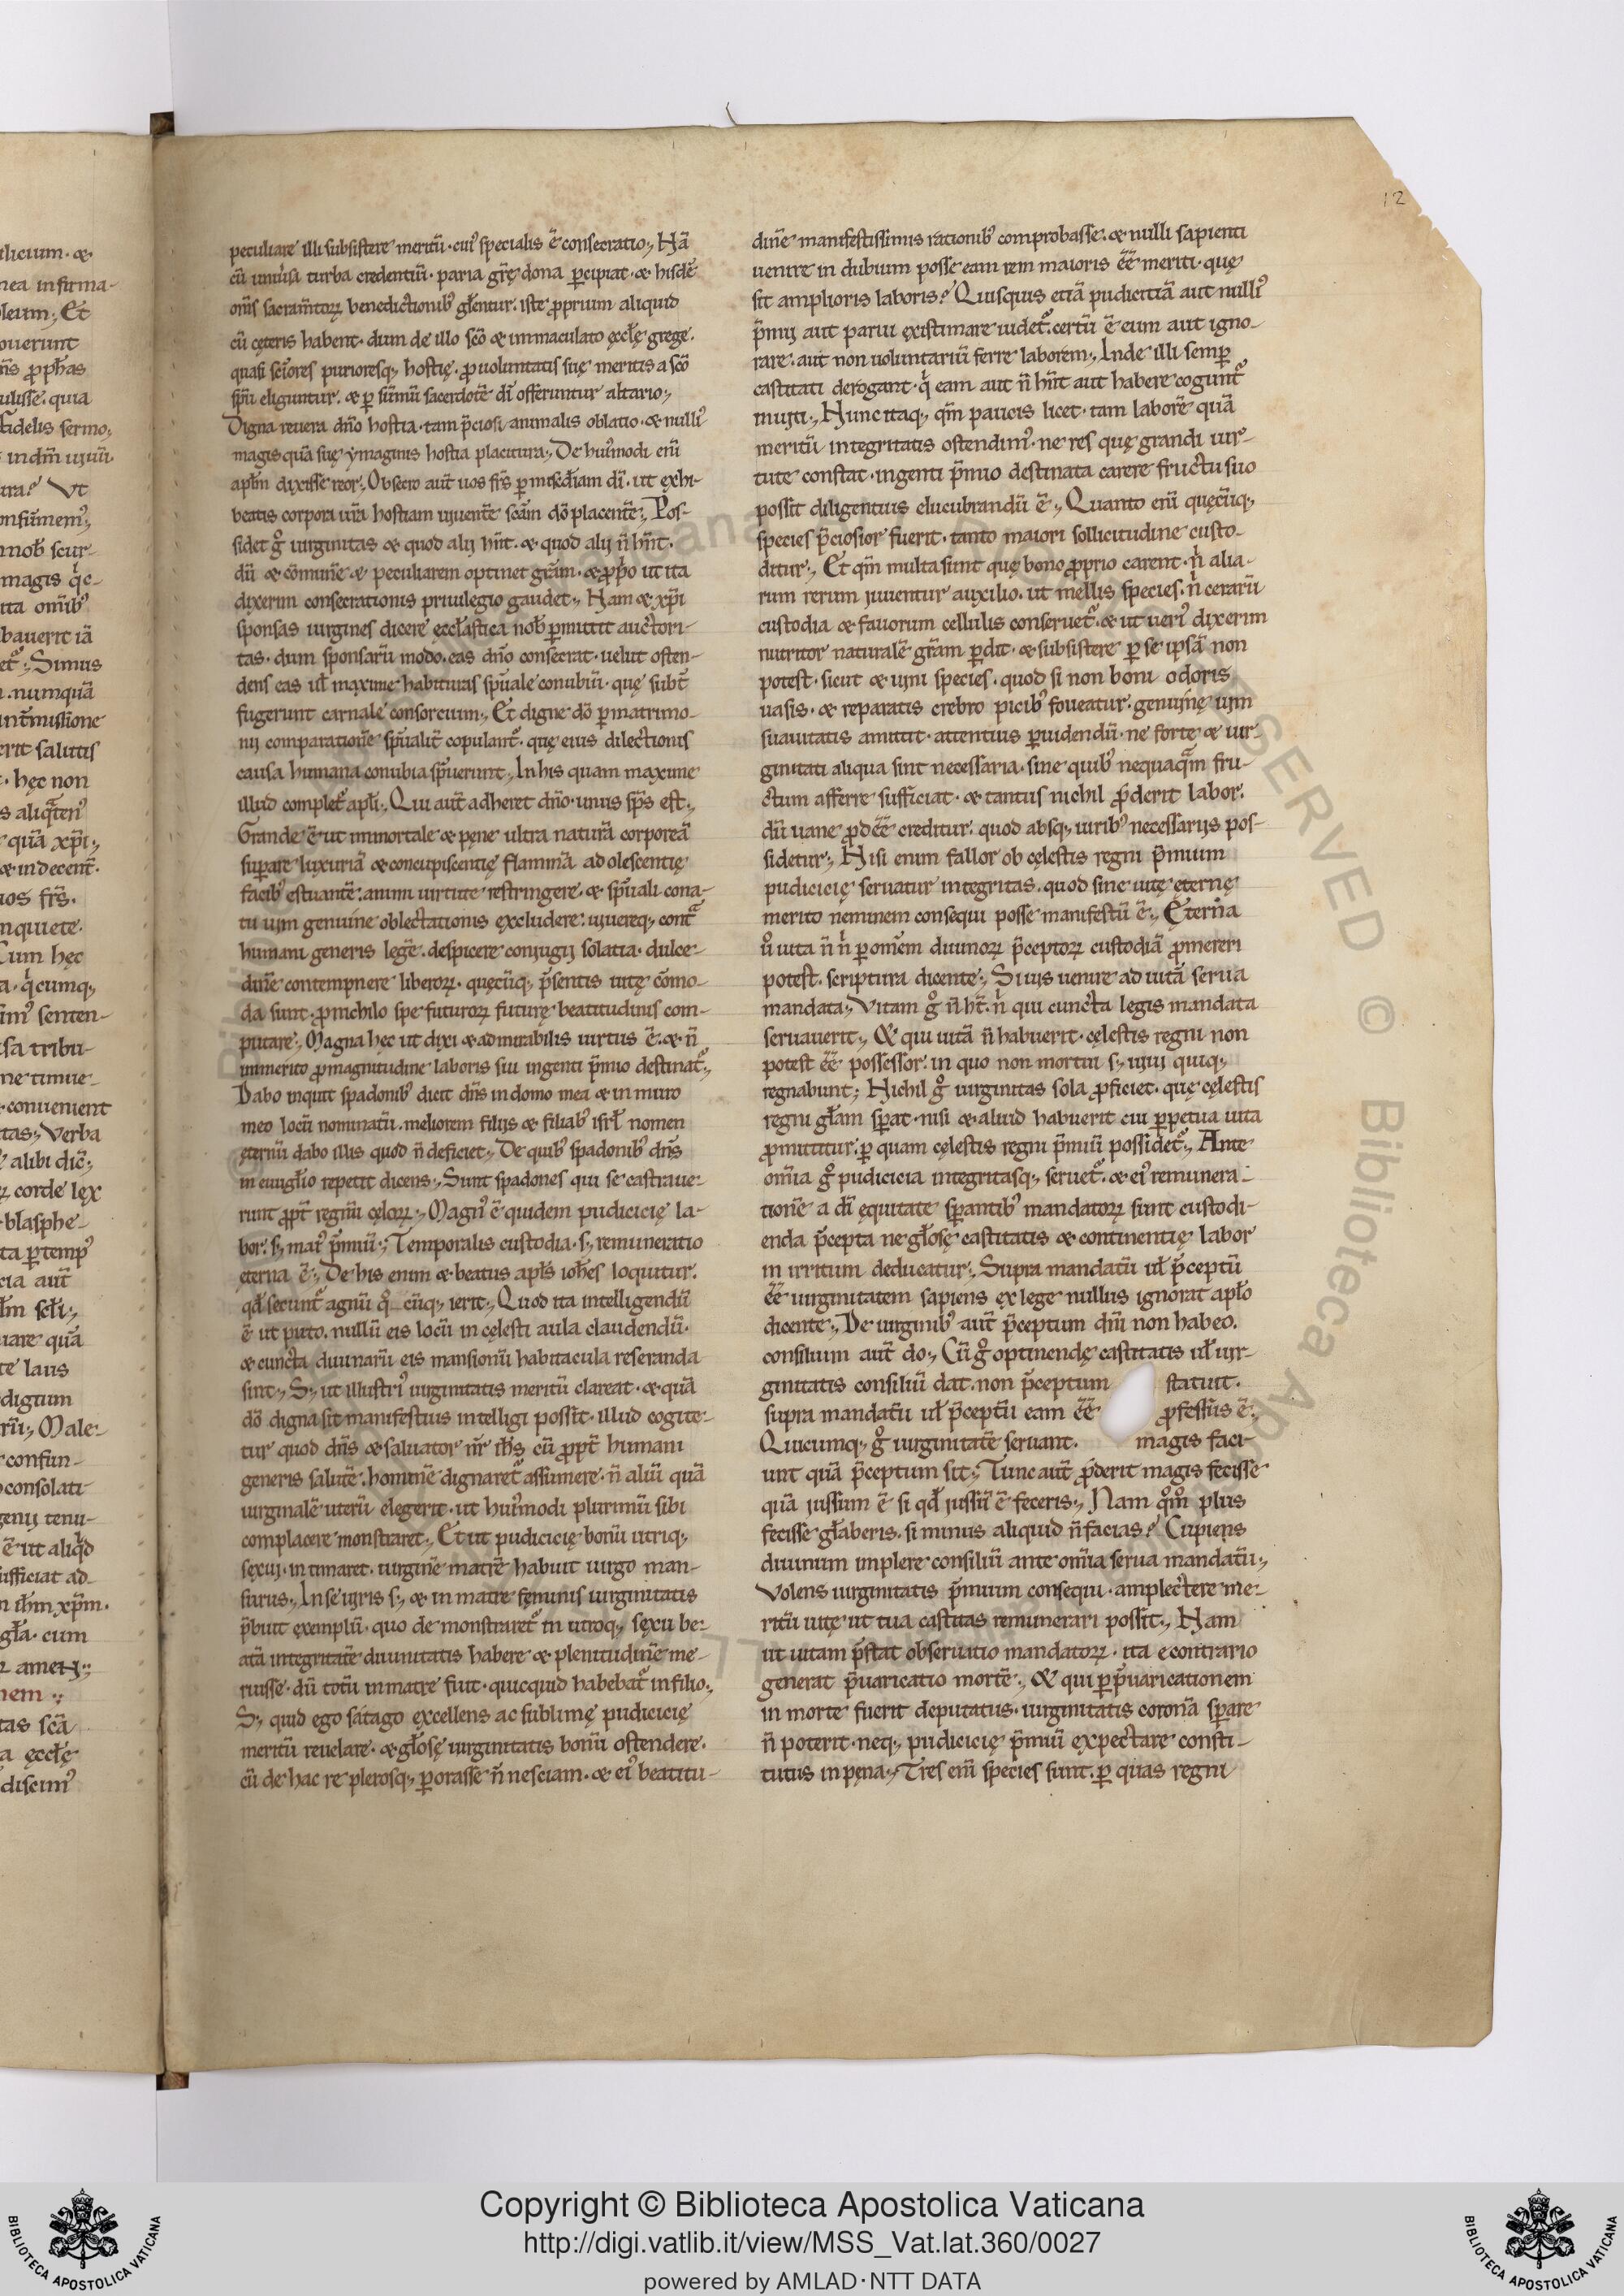 12
peculiare illi subsistere meritū · cui᾽ specialis ē consecratio ·, Nā
cū uniu͛sa turba credentiū · paria grę dona ꝑcipiat · & hisdē
om̄s sacram̄toꝝ benedictionib᾽ gło̅entur · iste ꝓprium aliquid
cū cęteris habent · dum de illo sc̄o & immaculato ęccłę grege ·
quasi sc̄iores purioresq·, hostię · ꝓ uoluntatis suę meritis a sc̄o
sp̄u eliguntur · & ꝑ sūmū sacerdotē dī offeruntur altario ·,
Digna reuera dn̄o hostia · tam p̄ciosi animalis oblatio · & nulli᾽
magis quā suę ymaginis hostia placitura ·, De hui᾽modi enī
apłm dixisse reor ·, Obsecro aut̄ uos fr̄s ꝑ mis̄ediam dī · ut exhi-
beatis corpora ur̄a hostiam uiuentē sc̄am dō placentē ·, Pos-
sidet gͦ uirginitas & quod alij hn̄t · & quod alij n̄ hn̄t ·
dū & cōmunē & peculiarem optinet gr̄am · & ꝓpͦo ut ita
dixerim consecrationis priuilegio gaudet ·, Nam & xp̄i
sponsas uirgines dicere ęccłastica nob̄ ꝑmittit auctori-
tas · dum sponsarū modo · eas dn̄o consecrat · uelut osten-
dens eas uł maxime habituras sp̄uale conubiū · quę subt̄
fugerunt carnale consorcium ·, Et digne dō ꝑ matrimo-
nij comparationē sp̄ualit̄ copulant᷑ · quę eius dilectionis
causa humana conubia sp̄uerunt ·, In his quam maxime
illud complet᷑ apłi ·, Qui aut̄ adheret dn̄o · unus sp̄s est ·,
Grande ē ut immortale & pęne ultra naturā corporeā
suꝑare luxuriā & concupiscentię flammā adolescentię
facib᾽ estuantē · animi uirtute restringere · & sp̄uali cona-
tu uim genuine oblectationis excludere · uiuereq·, contᷓ
humani generis legē · despicere coniugij solatia · dulce-
dinē contempnere liberoꝝ · quęcūq·, p̄sentis uitę cōmo-
da sunt · ꝓ nichilo spe futuroꝝ futurę beatitudinis com-
putare ·, Magna hęc ut dixi & admirabilis uirtus ē · & n̄
immerito ꝓ magnitudine laboris sui ingenti p̄mio destinat᷑ ·,
Dabo inquit spadonib᾽ dicit dn̄s in domo mea & in muro
meo locū nominatū · meliorem filijs & filiab᾽ isrł nomen
ęternū dabo illis quod n̄ deficiet ·, De quib᾽ spadonib᾽ dn̄s
in euuigłio repetit dicens ·, Sunt spadones qui se castraue-
runt ꝓpt̄ regnū cęloꝝ ·, Magn᾽ ē quidem pudicicię la-
bor · s·, mai᾽ p̄miū ·, Temporalis custodia · s·, remuneratio
ęterna ē ·, De his enim & beatus apłs ioh̄es loquitur ·
qđ secunt᷑ agnū qͦcūq·, ierit ·, Quod ita intelligendū
ē ut puto · nullū eis locū in cęlesti aula claudendū ·
& cuncta diuinarū eis mansionū habitacula reseranda
sint ·, S·, ut illustri᾽ uirginitatis meritū clareat · & quā
dō digna sit manifestius intelligi possit · illud cogite-
tur quod dn̄s & saluator nr̄ ih̄s cū ꝓpt̄ humani
generis salutē · hominē dignaret᷑ assumere · n̄ aliū quā
uirginalē uterū elegerit · ut hui᾽modi plurimū sibi
complacere monstraret ·, Et ut pudicicię bonū utriq·,
sexui · intimaret · uirginē matrē habuit uirgo man-
surus ·, In se uiris s·, & in matre feminis uirginitatis
p̄buit exemplū · quo demonstraret᷑ in utroq·, sexu be-
atā integritatē diuinitatis habere & plenitudinē me-
ruisse · dū totū in matre fuit · quicquid habebat᷑ in filio ·,
S·, quid ego satago excellens ac sublimę pudicicię
meritū reuelare · & głosę uirginitatis bonū ostendere ·
cū de hac re plerosq·, ꝑorasse n̄ nesciam · & ei᾽ beatitu-
dinē manifestissimis rationib᾽ comprobasse · & nulli sapienti
uenire in dubium posse eam rem maioris ēē meriti · quę
sit amplioris laboris? Quisquis etiā pudicitiā aut nulli᾽
p̄mij aut parui existimare uidet᷑ · certū ē eum aut igno-
rare · aut non uoluntariū ferre laborem ·, Inde illi semꝑ
castitati derogant · qͥ eam aut n̄ hn̄t aut habere cogunt᷑
inuiti ·, Hunc itaq·, qm̄ paucis licet · tam laborē quā
meritū integritatis ostendim᾽ · ne res quę grandi uir-
tute constat · ingenti p̄mio destinata carere fructu suo
possit diligentius elucubrandū ē ·, Quanto enī quęcūq·,
species p̄ciosior fuerit · tanto maiori sollicitudine custo-
ditur ·, Et qm̄ multa sunt quę bono ꝓprio carent · nͥ alia-
rum rerum iuuentur auxilio · ut mellis species · nͥ cerarū
custodia & fauorum cellulis conseruet᷑ · & ut ueri᾽ dixerim
nutritor naturalē gr̄am ꝑdit · & subsistere ꝑ se ipsā non
potest · sicut & uini species · quod si non boni odoris
uasis · & reparatis crebro picib᾽ foueatur · genuinę uim
suauitatis amittit · attentius ꝑuidendū · ne forte & uir-
ginitati aliqua sint necessaria · sine quib᾽ nequaqᷓm fru-
ctum afferre sufficiat · & tantus nichil ꝓderit labor ·
dū uane ꝓdēē creditur · quod absq·, uirib᾽ necessarijs pos-
sidetur ·, Nisi enim fallor ob cęlestis regni p̄mium
pudicicię seruatur integritas · quod sine uitę eternę
merito neminem consequi posse manifestū ē ·, Eterna
uͦ uita n̄ nͥ ꝑ omēm diuinoꝝ p̄ceptoꝝ custodiā ꝓmereri
potest · scriptura dicente ·, Si uis uenire ad uitā serua
mandata ·, Vitam gͦ n̄ ht̄ · nͥ qui cuncta legis mandata
seruauerit ·, & qui uitā n̄ habuerit · cęlestis regni non
potest ēē possessor · in quo non mortui s·, uiui quiq·,
regnabunt ; Nichil gͦ uirginitas sola ꝓficiet · quę cęlestis
regni głam sꝑat · nisi & aliud habuerit cui ꝑpetua uita
ꝓmittitur · ꝑ quam cęlestis regni p̄miū possidet᷑ ·, Ante
om̄ia gͦ pudicicia integritasq·, seruet᷑ · & ei᾽ remunera-
tionē a dī ęquitate sꝑantib᾽ mandatoꝝ sunt custodi-
enda p̄cepta ne głosę castitatis & continentię labor
in irritum deducatur ·, Supra mandatū uł p̄ceptū
ēē uirginitatem sapiens ex lege nullus ignorat apło
dicente ·, De uirginib᾽ aut̄ p̄ceptum dn̄i non habeo ·
consilium aut̄ do ·, Cū gͦ optinendę castitatis uł uir-
ginitatis consiliū dat · non p̄ceptum statuit ·
supra mandatū uł p̄ceptū eam ēē ꝓfessus ē ·
Quicumq·, gͦ uirginitatē seruant · magis faci-
unt quā p̄ceptum sit ·, Tunc aut̄ ꝓderit magis fecisse
quā iussum ē si qđ iussū ē feceris ·, Nam qͦmͦ plus
fecisse głaberis · si minus aliquid n̄ facias? Cupiens
diuinum implere consiliū ante om̄ia serua mandatū ·,
Volens uirginitatis p̄mium consequi · amplectere me-
ritū uitę ut tua castitas remunerari possit ·, Nam
ut uitam p̄stat obseruatio mandatoꝝ · ita e contrario
generat p̄uaricatio mortē ·, & qui ꝑ p̄uaricationem
in morte fuerit deputatus · uirginitatis coronā sꝑare
n̄ poterit · neq·, pudicicię p̄miū expectare consti-
tutus in pęna ·, Tres enī species sunt · ꝑ quas regni
Copyright © Biblioteca Apostolica Vaticana
http://digi.vatlib.it/view/MSS_Vat.lat.360/0027
powered by AMLAD·NTT DATA
BIBLIOTECA APOSTOLICA VATICANA
BIBLIOTECA APOSTOLICA VATICANA